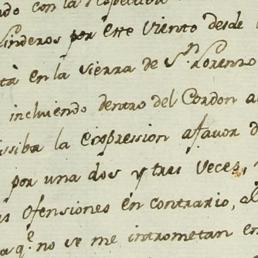 do con la Respectiva
linderos por este Viento desde l
ta en la Sierra de Sn. Lorenzo
incluiendo dentro del Cordon a
siba la expression afavor d
por una dos y tres Veces,
s ofensiones en contrario, al
a qe. no se me intrometan en